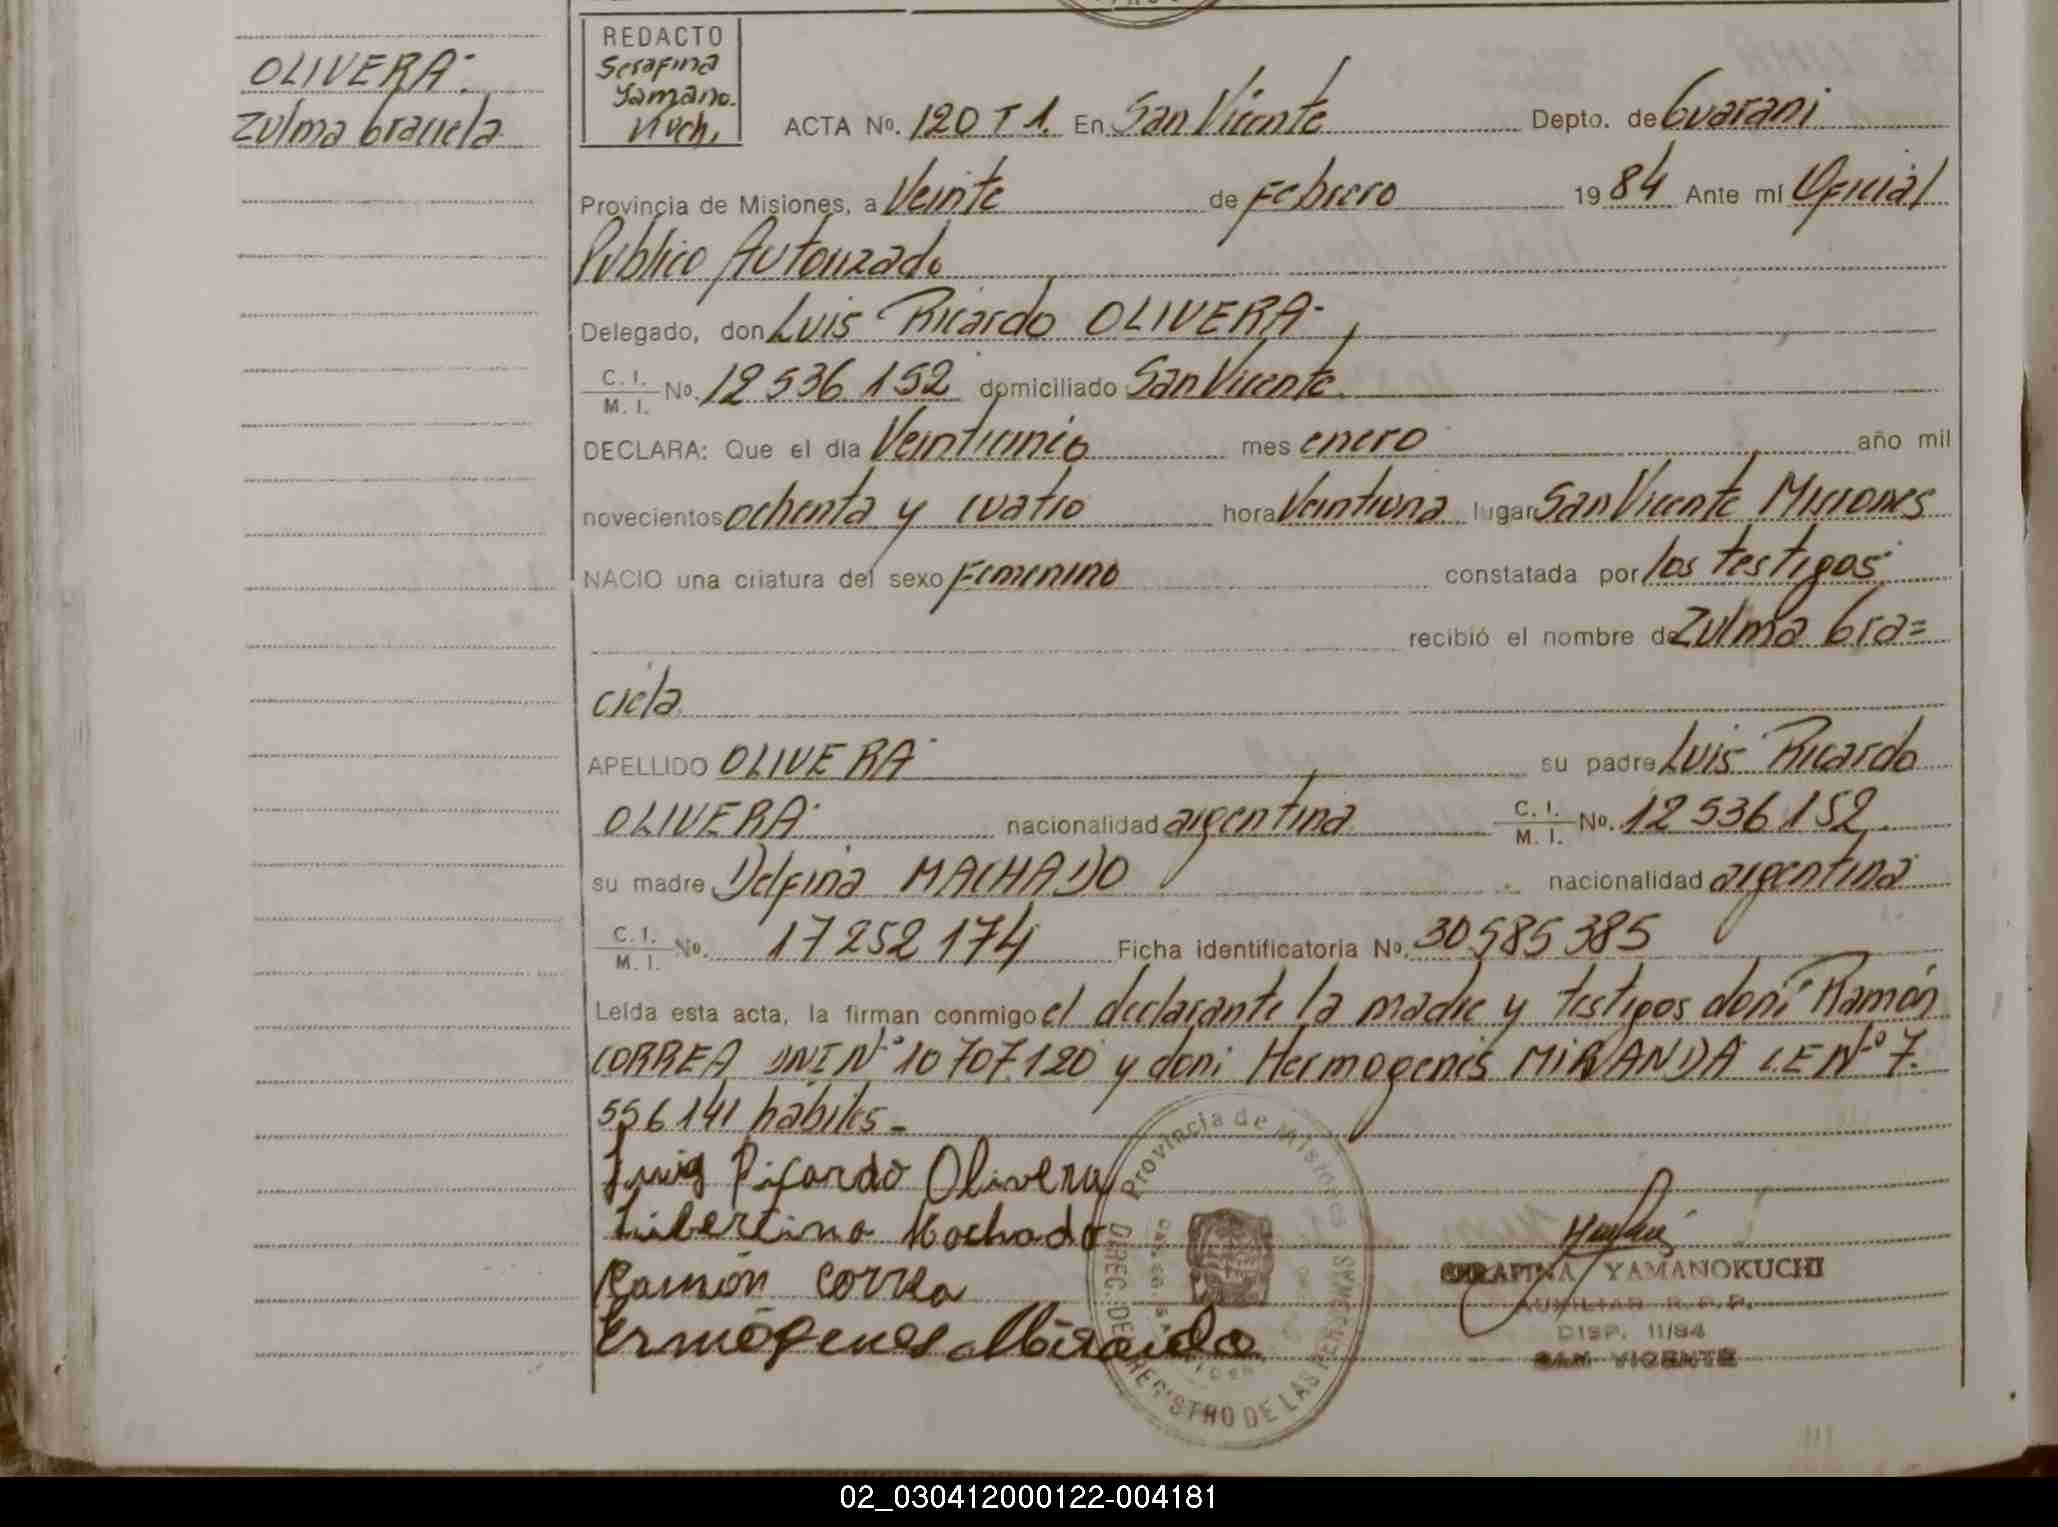 OLIVERA
Zulma Graciela
REDACTO
Serafina
Yamano.
Kuch,
ACTA No. 120 T 1. En San Vicente Depto. de Guarani
Provincia de Misiones, a Veinte de Febrero 1984 Ante mí Oficial
Público Autorizado
Delegado, don Luis Ricardo OLIVERA
C. I. / M. I. No. 12 536 152 domiciliado San Vicente
DECLARA: Que el día Veinticinco mes enero año mil
novecientos ochenta y cuatro hora Veintiuna lugar San Vicente Misiones
NACIO una criatura del sexo Femenino constatada por los testigos
recibió el nombre de Zulma Gra=
ciela
APELLIDO OLIVERA su padre Luis Ricardo
OLIVERA nacionalidad argentina C. I. / M. I. No. 12 536 152
su madre Delfina MACHADO nacionalidad argentina
C. I. / M. I. No. 17 252 174 Ficha identificatoria No. 30 585 385
Leída esta acta, la firman conmigo el declarante la madre y testigos don: Ramón
CORREA DNI Nº 10 707.120 y don: Hermogenis MIRANDA L.E Nº 7.
556 141 habiles -
Luis Ricardo Olivera
Libertina Machado
Ramón Correa
Ermógenes Miranda
Provincia de Misiones
DIREC. DE REGISTRO DE LAS PERSONAS
SERAFINA YAMANOKUCHI
AUXILIAR R. P. P.
DISP. 11/84
SAN VICENTE
02_030412000122-004181